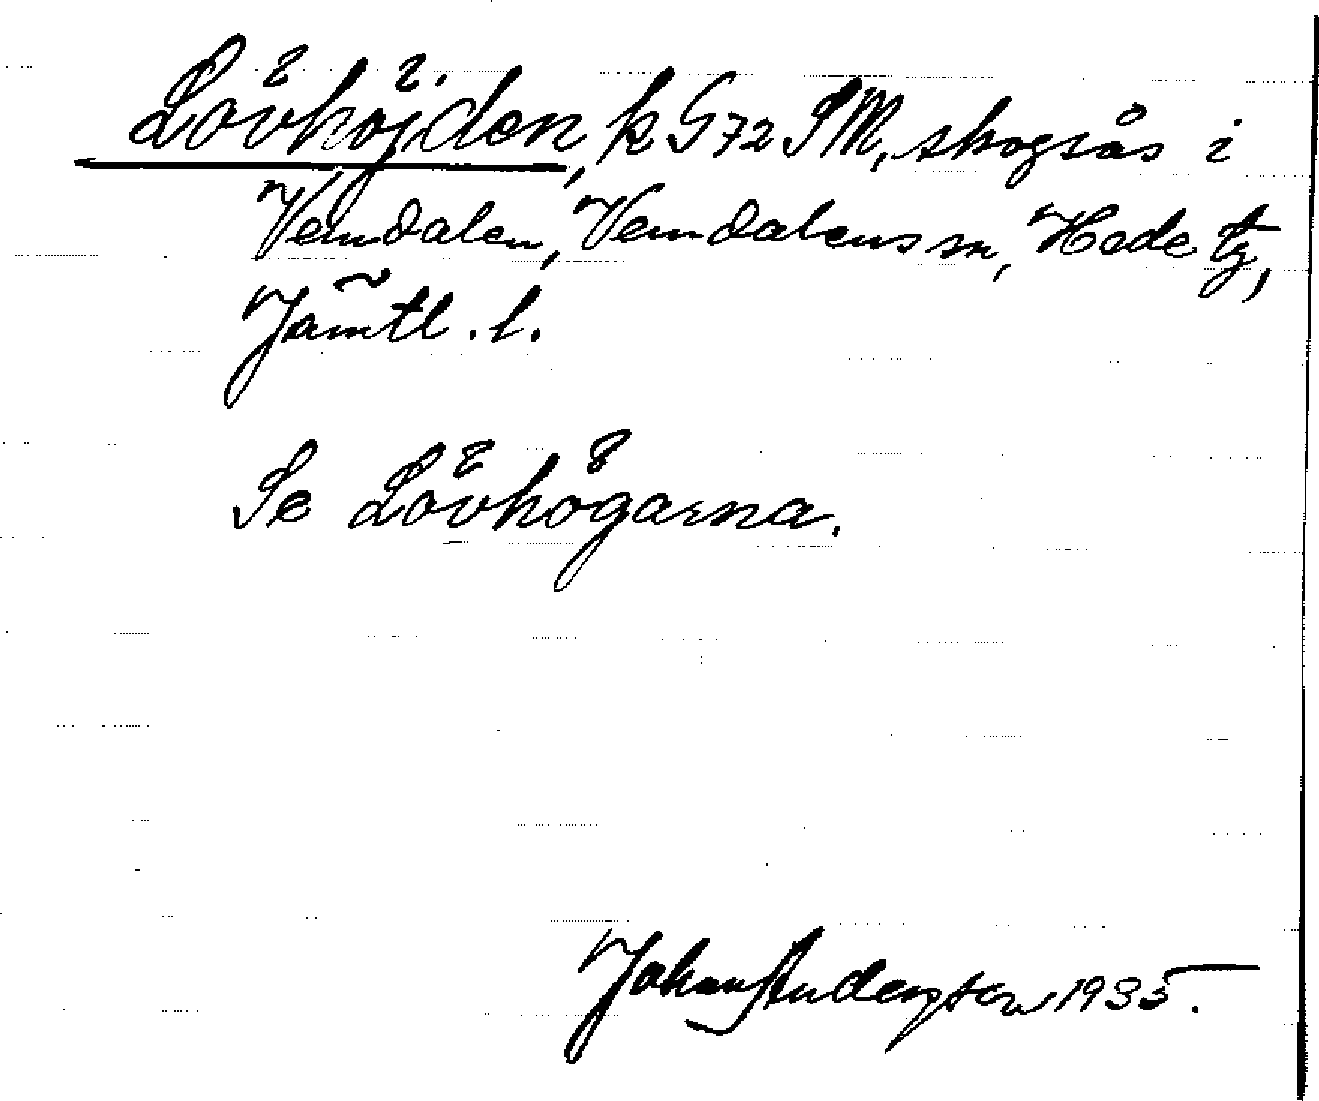 Lövhöjden, k G72 SM, skogsås i
Vemdalen, Vemdalens sn, Hede tg,
Jämtl. l.
Se Lövhögarna.
Johan Anderzson 1935.